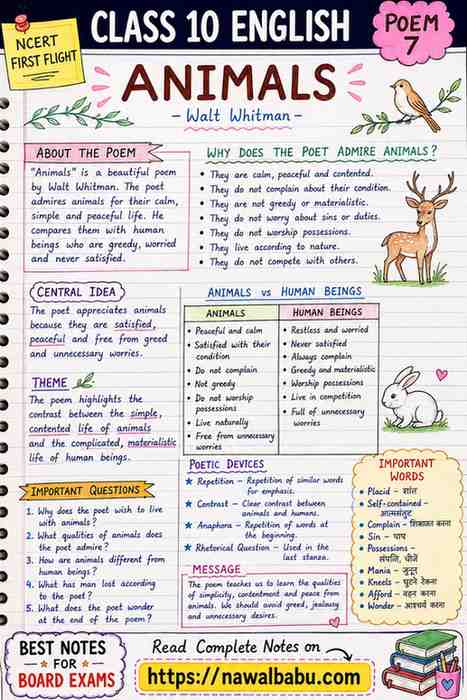 NCERT
FIRST FLIGHT
CLASS 10 ENGLISH
POEM
7
ANIMALS
- Walt Whitman -
ABOUT THE POEM
"Animals" is a beautiful poem
by Walt Whitman. The poet
admires animals for their calm,
simple and peaceful life. He
compares them with human
beings who are greedy, worried
and never satisfied.
WHY DOES THE POET ADMIRE ANIMALS?
• They are calm, peaceful and contented.
• They do not complain about their condition.
• They are not greedy or materialistic.
• They do not worry about sins or duties.
• They do not worship possessions.
• They live according to nature.
• They do not compete with others.
CENTRAL IDEA
The poet appreciates animals
because they are satisfied,
peaceful and free from greed
and unnecessary worries.
THEME
The poem highlights the
contrast between the simple,
contented life of animals
and the complicated, materialistic
life of human beings.
ANIMALS vs HUMAN BEINGS
ANIMALS
• Peaceful and calm
• Satisfied with their
condition
• Do not complain
• Not greedy
• Do not worship
possessions
• Live naturally
• Free from unnecessary
worries
HUMAN BEINGS
• Restless and worried
• Never satisfied
• Always complain
• Greedy and materialistic
• Worship possessions
• Live in competition
• Full of unnecessary
worries
IMPORTANT QUESTIONS
1. Why does the poet wish to live
with animals?
2. What qualities of animals does
the poet admire?
3. How are animals different from
human beings?
4. What has man lost according
to the poet?
5. What does the poet wonder
at the end of the poem?
POETIC DEVICES
★ Repetition – Repetition of similar words
for emphasis.
★ Contrast – Clear contrast between
animals and humans.
★ Anaphora – Repetition of words at
the beginning.
★ Rhetorical Question – Used in the
last stanza.
MESSAGE
The poem teaches us to learn the qualities
of simplicity, contentment and peace from
animals. We should avoid greed, jealousy
and unnecessary desires.
IMPORTANT
WORDS
• Placid – शांत
• Self-contained –
आत्मसंतुष्ट
• Complain – शिकायत करना
• Sin – पाप
• Possessions –
संपत्ति, चीजें
• Mania – जुनून
• Kneels – घुटने टेकना
• Afford – वहन करना
• Wonder – आश्चर्य करना
BEST NOTES
FOR
BOARD EXAMS
Read Complete Notes on
https://nawalbabu.com